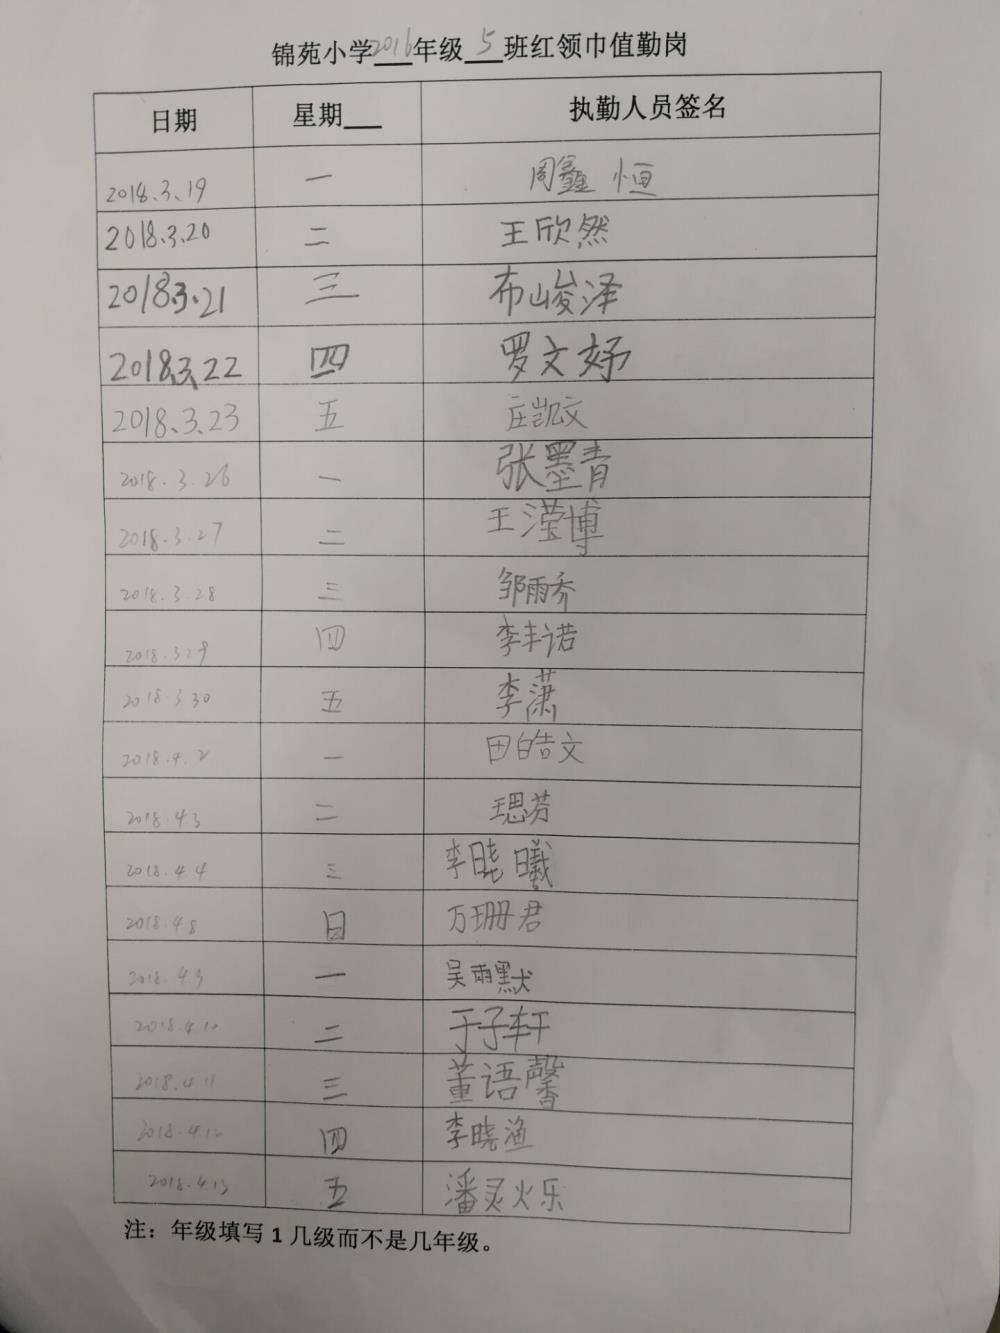 锦苑小学2016年级5班红领巾值勤岗
日期 星期 执勤人员签名
2018.3.19 一 周鑫恒
2018.3.20 二 王欣然
2018.3.21 三 布山峻泽
2018.3.22 四 罗文妤
2018.3.23 五 庄凯文
2018.3.26 一 张墨青
2018.3.27 二 王滢博
2018.3.28 三 邹雨乔
2018.3.29 四 李丰诺
2018.3.30 五 李潇
2018.4.2 一 田皓文
2018.4.3 二
2018.4.4 三 李晓曦
2018.4.8 日 万珊君
2018.4.9 一 吴雨默
2018.4.10 二 于子轩
2018.4.11 三 董语馨
2018.4.12 四 李晓渔
2018.4.13 五 潘灵火乐
注：年级填写1几级而不是几年级。